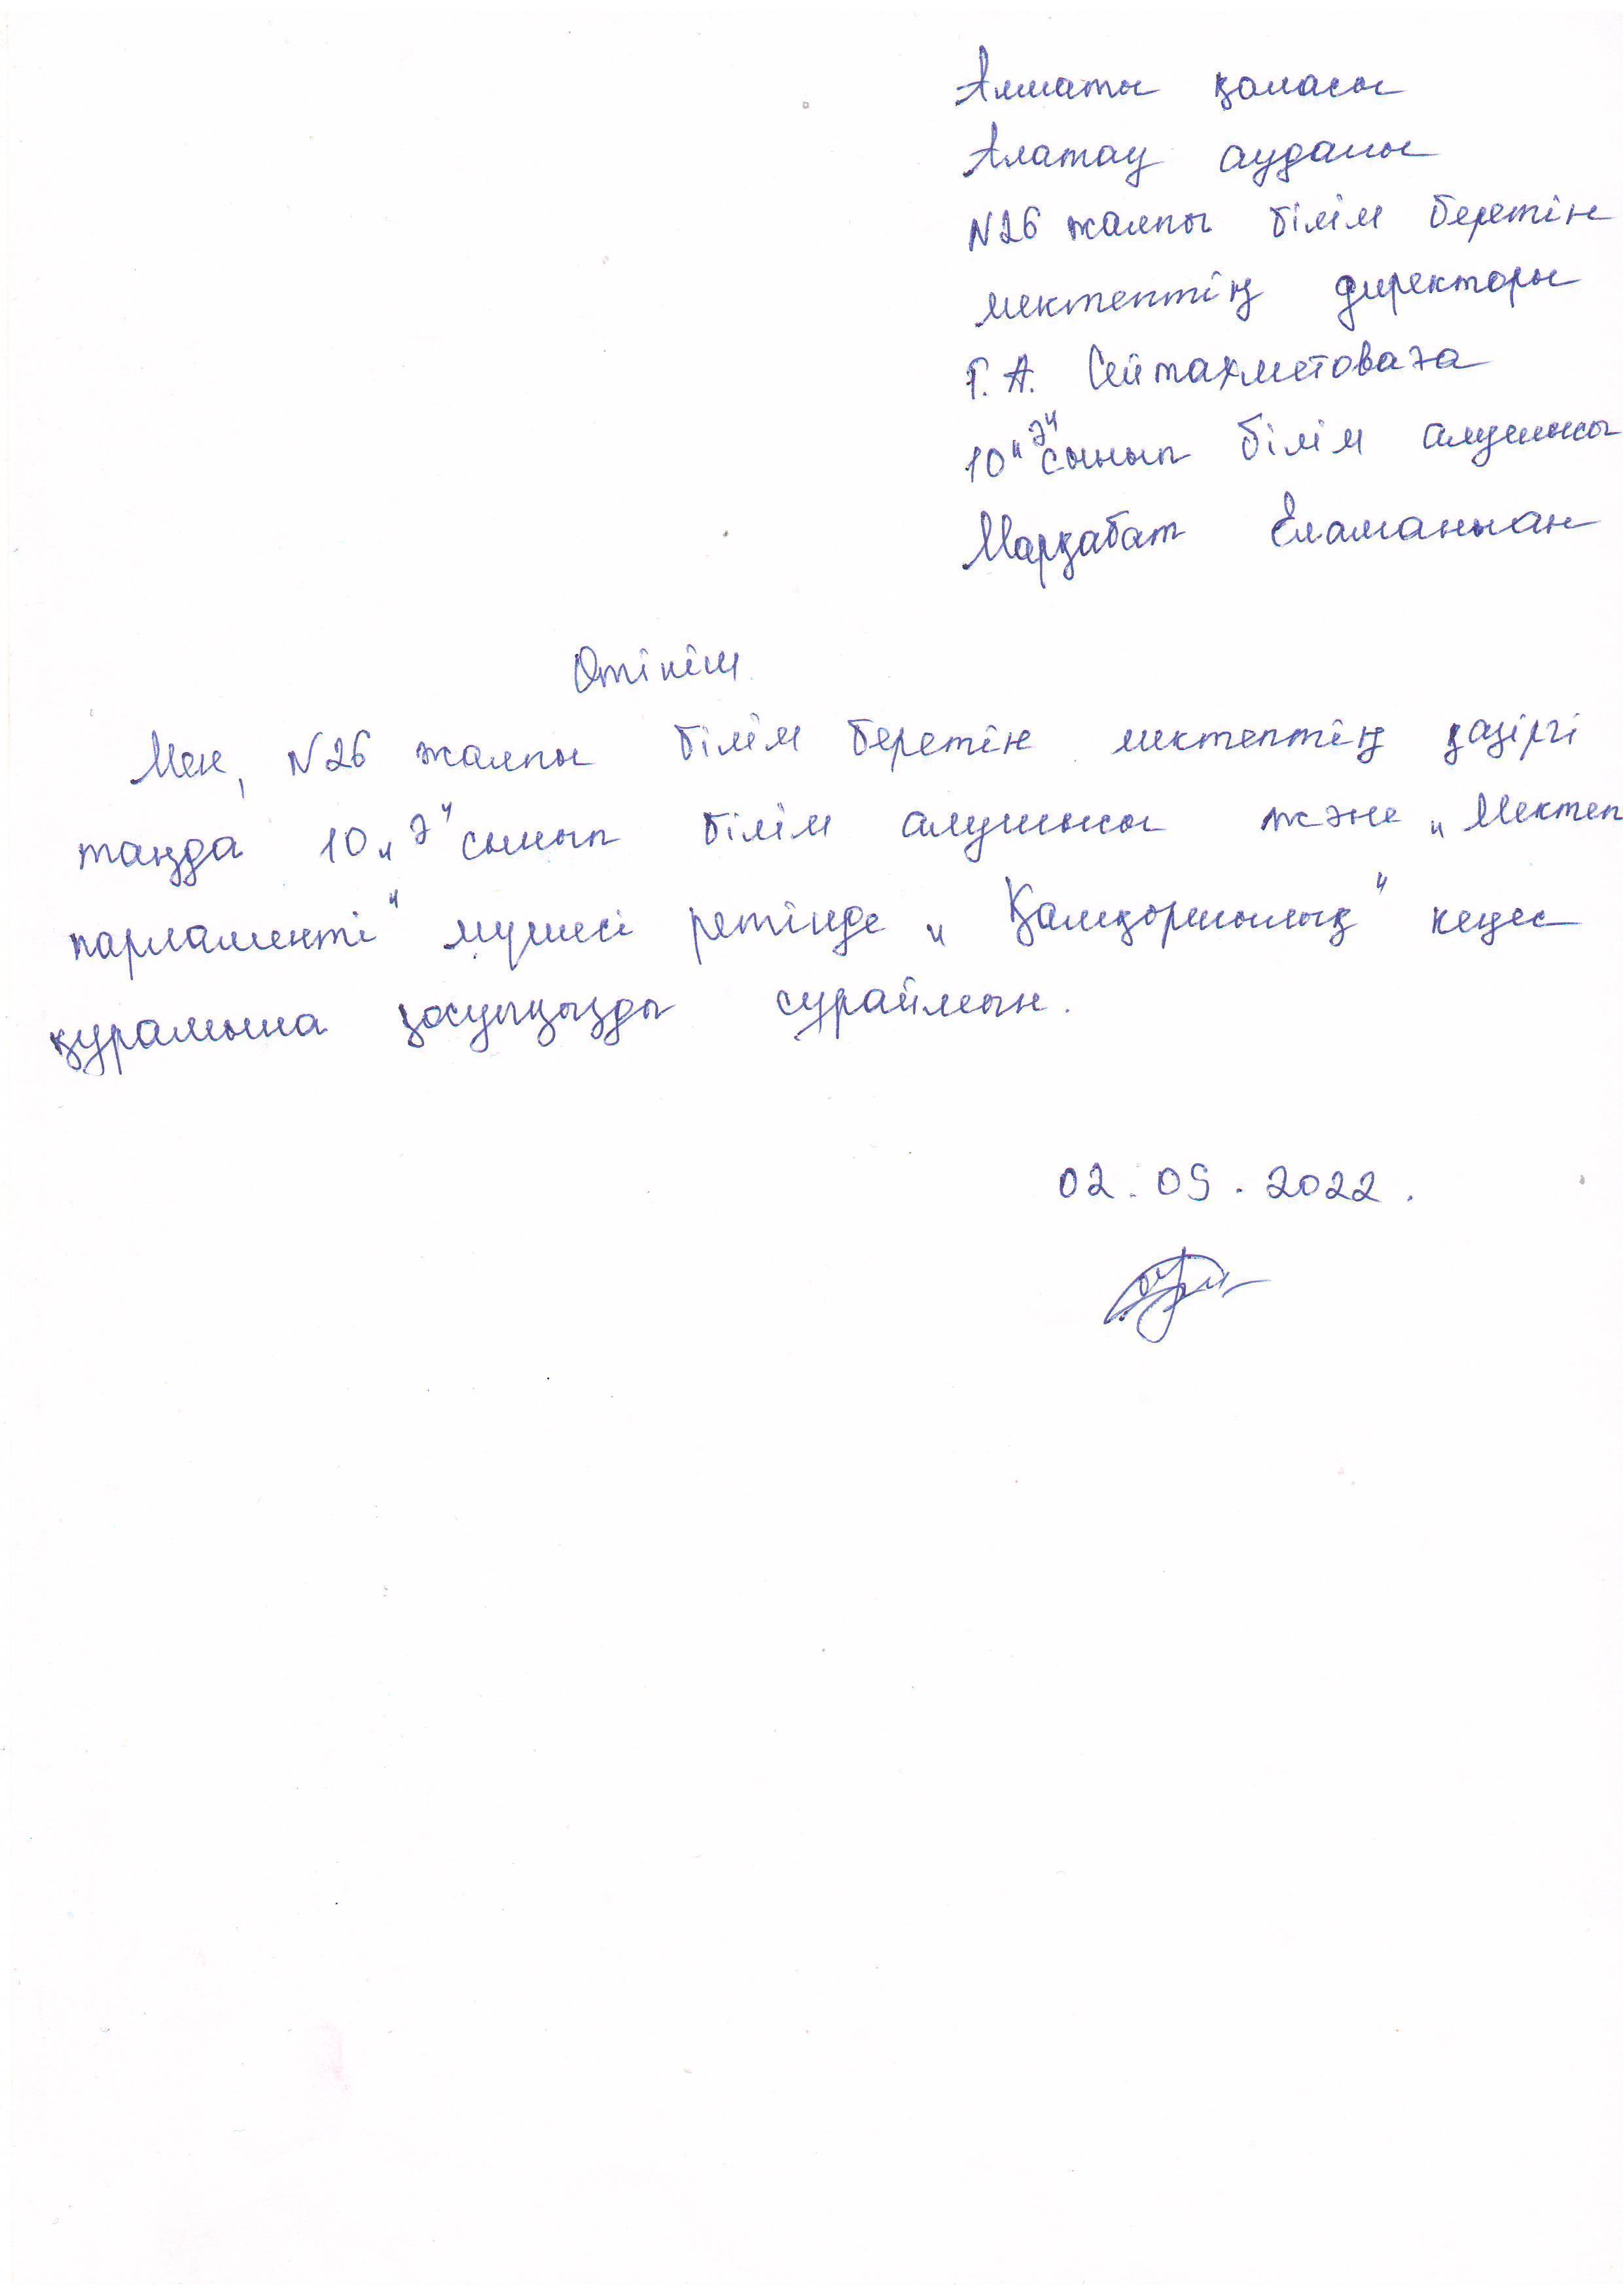 Алматы қаласы
Алатау ауданы
N26 жалпы білім беретін
мектептің директоры
Г. А. Сейтахметоваға
10 „Ә" сынып білім алушысы
Марқабат Еламаннан
Өтініш
Мен, N26 жалпы білім беретін мектептің қазіргі
таңда 10 „Ә" сынып білім алушысы және „Мектеп
парламенті" мүшесі ретінде „Қамқоршылық" кеңес
құрамына қосуыңызды сұраймын.
02.09.2022.